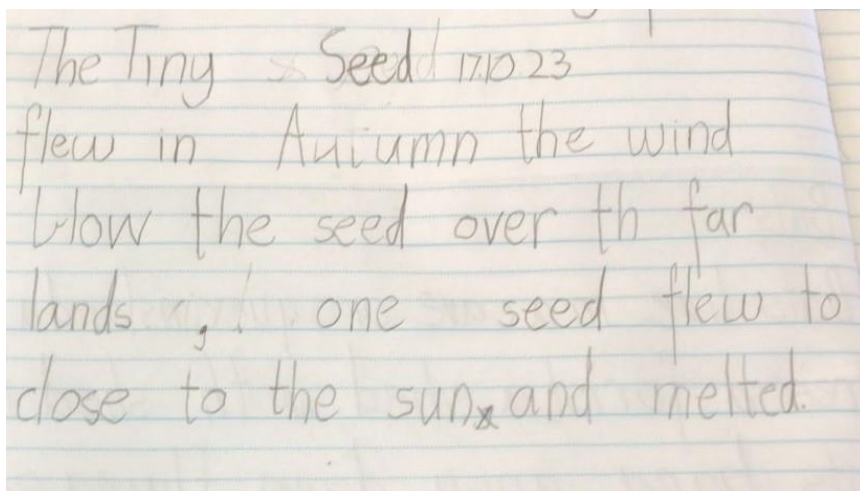 The Tiny Seed 17.10.23
flew in Autumn the wind
blow the seed over th far
lands , one seed flew to
close to the sun and melted.